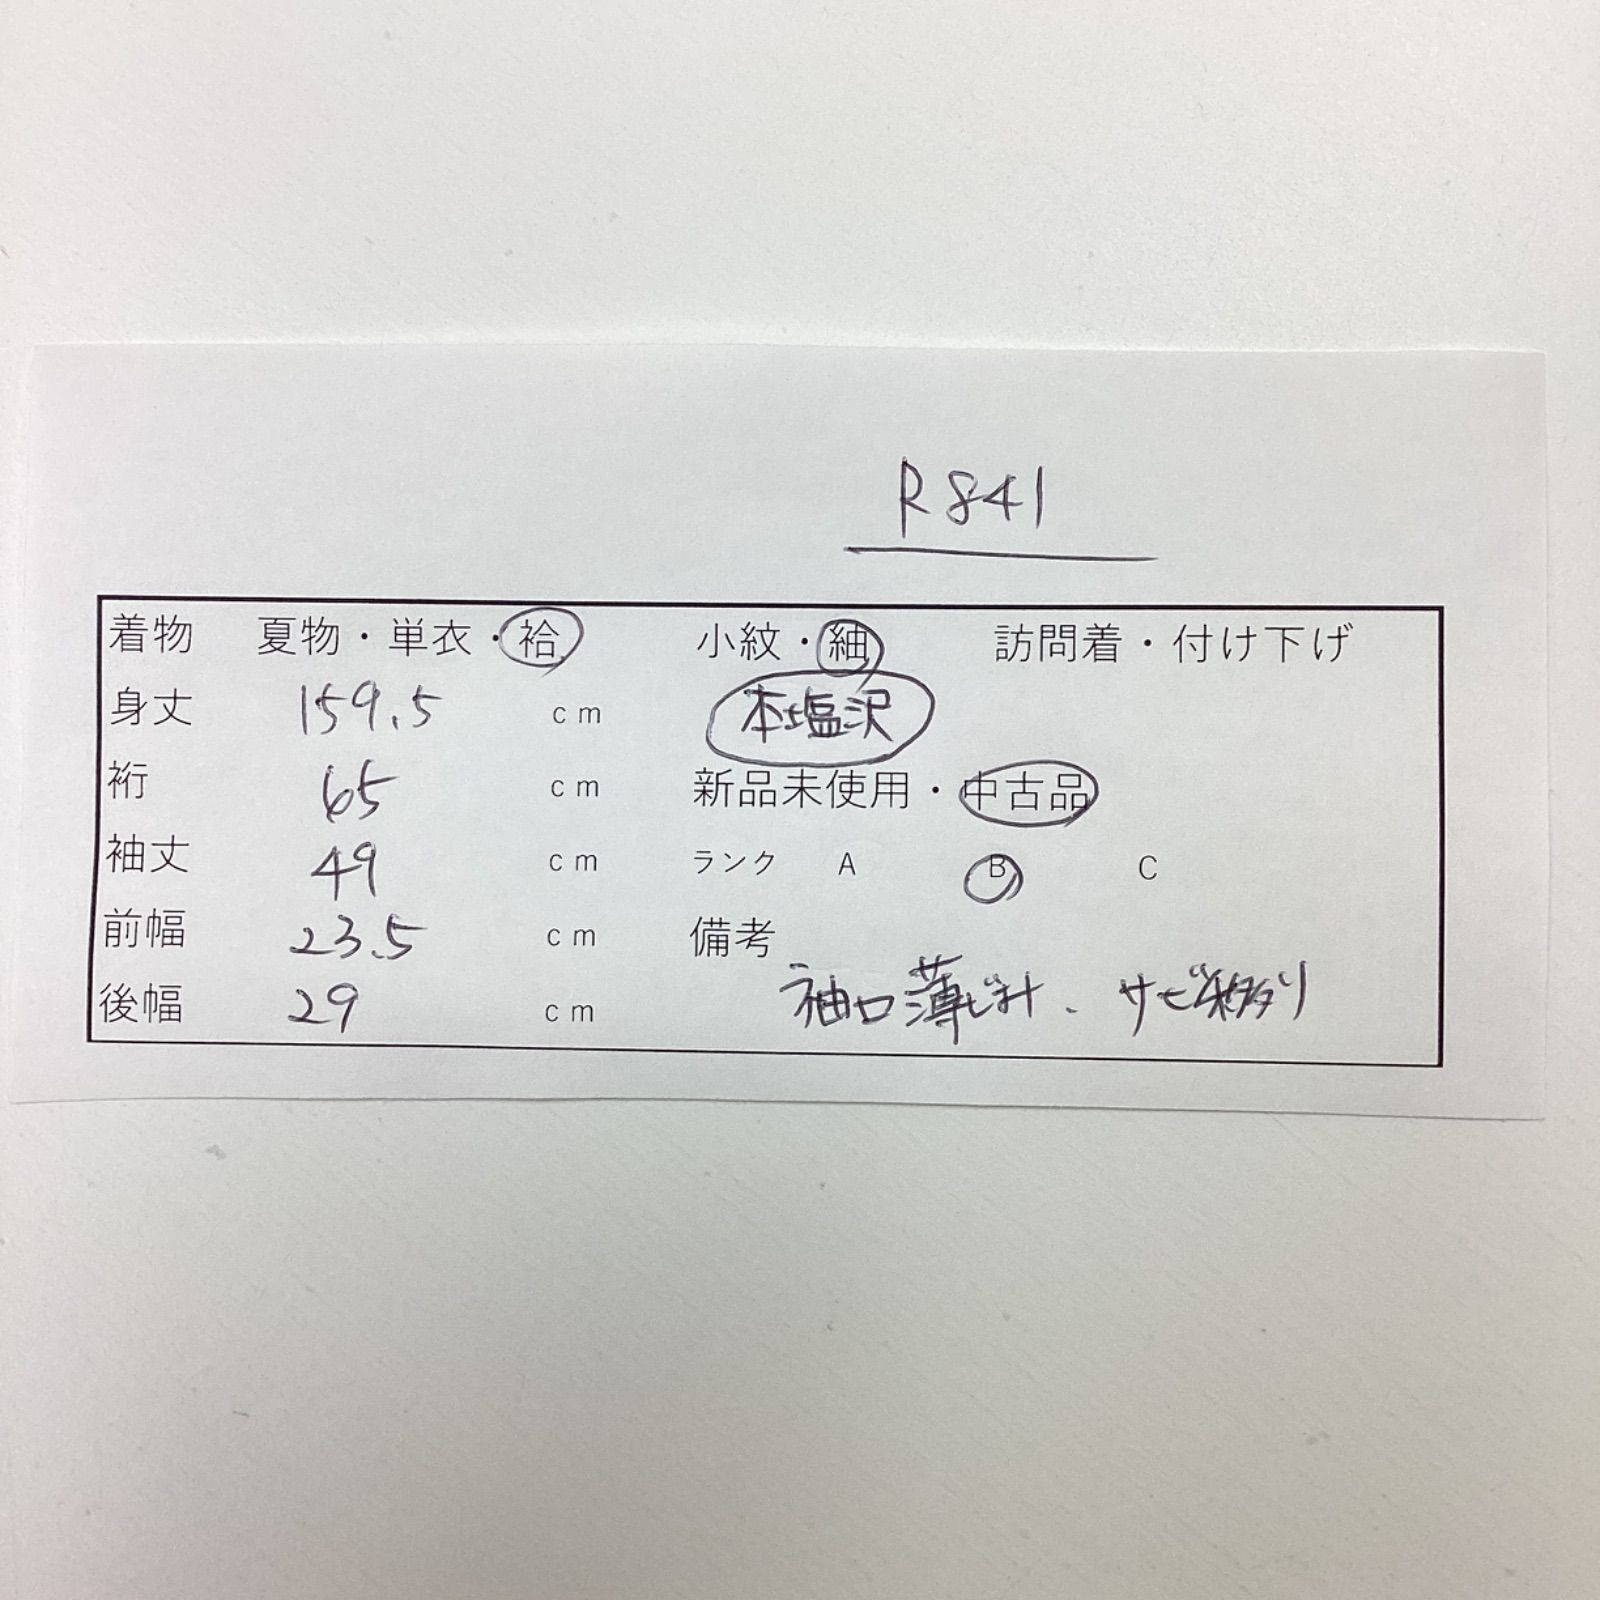 R841
着物 夏物・単衣・袷 小紋・紬 訪問着・付け下げ
身丈 159.5 cm 本塩沢
裄 65 cm 新品未使用・中古品
袖丈 49 cm ランク A B C
前幅 23.5 cm 備考
後幅 29 cm 袖口薄じみ、サビ